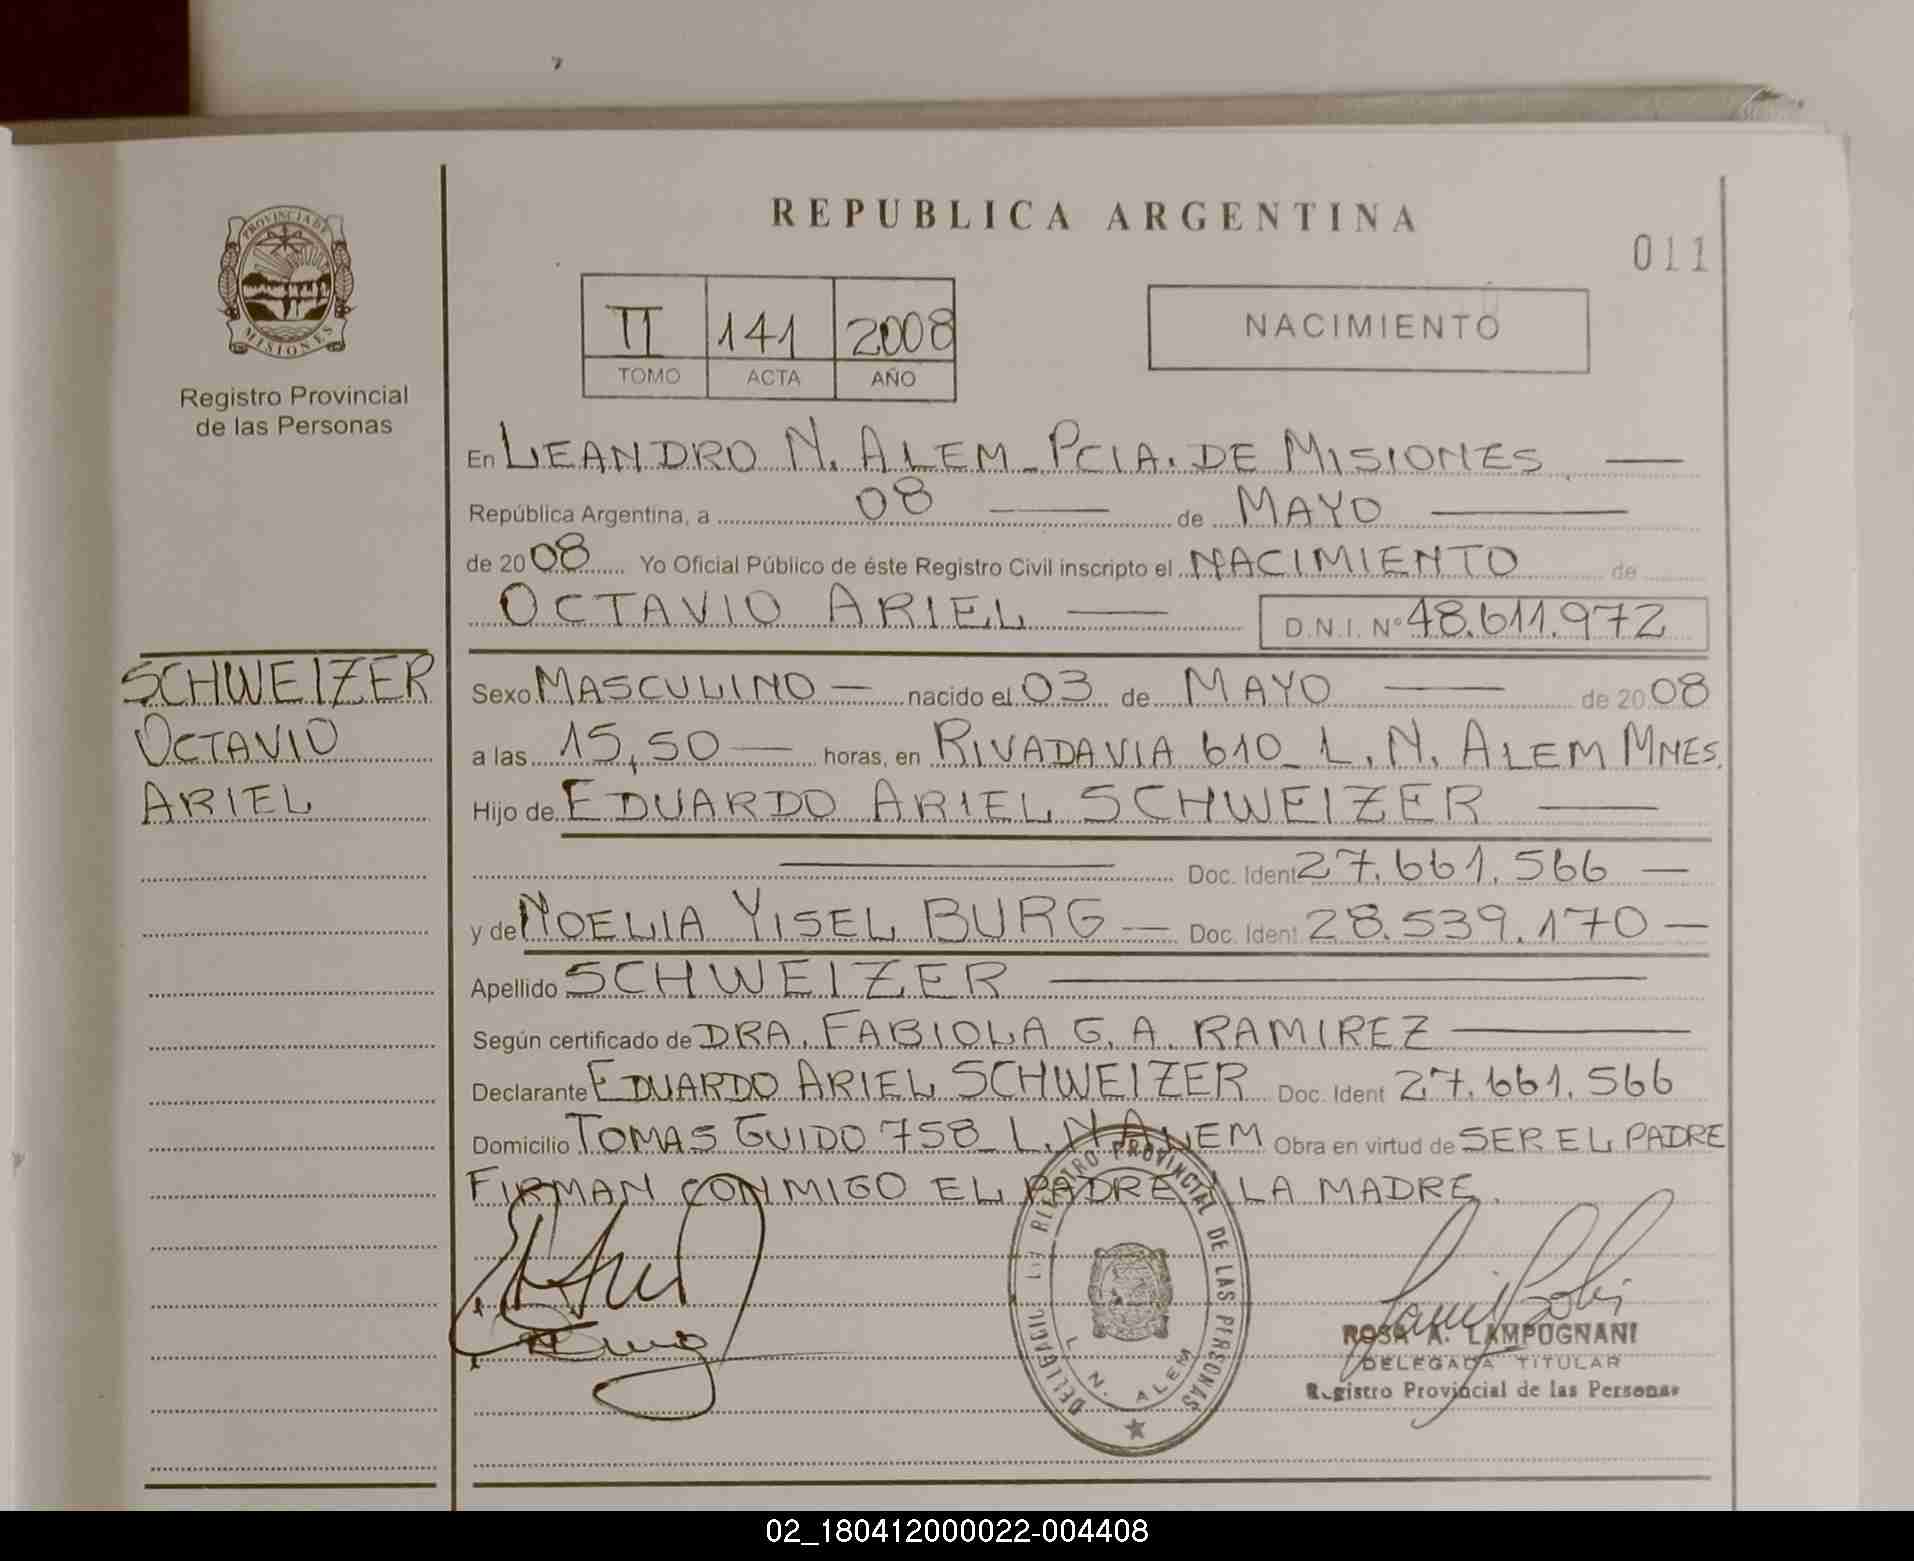 REPUBLICA ARGENTINA
011
PROVINCIA DE
MISIONES
Registro Provincial
de las Personas
II 141 2008
TOMO ACTA AÑO
NACIMIENTO
En LEANDRO N. ALEM - PCIA. DE MISIONES
República Argentina, a 08 de MAYO
de 20 08 Yo Oficial Público de éste Registro Civil inscripto el NACIMIENTO de
OCTAVIO ARIEL D.N.I. N° 48.611.972
SCHWEIZER
OCTAVIO
ARIEL
Sexo MASCULINO — nacido el 03 de MAYO — de 20 08
a las 15,50 — horas, en RIVADAVIA 610 - L. N. ALEM MNES.
Hijo de EDUARDO ARIEL SCHWEIZER —
Doc. Ident 27.661.566 —
y de NOELIA YISEL BURG — Doc. Ident 28.539.170 —
Apellido SCHWEIZER —
Según certificado de DRA. FABIOLA G. A. RAMIREZ —
Declarante EDUARDO ARIEL SCHWEIZER Doc. Ident 27.661.566
Domicilio TOMAS GUIDO 758 - L. N ALEM Obra en virtud de SER EL PADRE
FIRMAN CONMIGO EL PADRE Y LA MADRE.
REGISTRO PROVINCIAL DE LAS PERSONAS
L. N. ALEM
ROSA A. LAMPUGNANI
DELEGADA TITULAR
Registro Provincial de las Personas
02_180412000022-004408